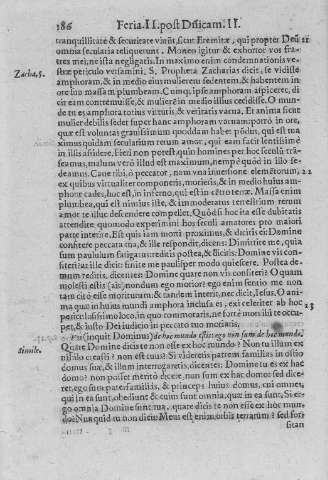 186 Feria. II. post Dñicam. II.
tranquillitate & securitate viuūt, sicut Eremitæ, qui propter Deū 21
omnia sæcularia reliquerunt. Moneo igitur & exhortor vos fra-
tres mei, ne ista negligatis. In maximo enim condemnationis ve-
stræ periculo versamini. S. Propheta Zacharias dicit, se vidisse
Zacha, 5.
amphoram, & in medio eius mulierem sedentem, & habentem in
ore suo massam plumbeam. Cumq; ipse amphoram aspiceret, di
cit eam contremuisse, & mulierē in medio illius cecidisse. O mun-
de tu es amphora totius virtutis, & veritatis vacua. Et anima sicut
mulier debilis sedet super hanc amphoram vacuam: portat in ore,
quæ est voluntas grauissimum quoddam habet pōdus, qui est ma
ximus quidam sæcularium rerum amor, qui eam facit lentissime
in illis assidere. Fieri non potest quin homines per hoc sæculū trā-
seamus, malum verò illud est maximum, nempè quòd in illo se-
deamus. Caue tibi, ò peccator, nam vna inuersione 22
ex quibus vitaliter componeris, morieris, & in medio huius am-
phoræ cades, hoc est, in inferno, qui est in centro terræ. Massa enim
plumbea, qui est nimius iste, & immoderatus terrestrium rerum
amor te illuc descendere compellet. Quòd si hoc ita esse dubitatis
attendite quomodo experimini hos sæculi amatores pro maiori
parte interire. Est quis iam morti proximus, & dicitis ei: Domine
confitere peccata tua, & ille respondit, dicens: Dimittite me, quia
sum paululum fatigatus: reditis postea, & dicitis: Domine vis con-
fiteri: at ille dicit: sinite me paulisper modo quiescere. Postea de-
mum reditis, dicentes: Domine quare non vis confiteri? O quam
molesti estis (ait) nondum ego morior: ego enim sentio me non
tam citò esse moriturum: & tandem interit, nec dicit, Iesus. O ani-
ma quæ in huius mundi amphora inclusa es, exi celeriter ab hoc 23
periculosissimo loco, in quo commoraris, ne fortè mors illa te occu-
pet, & iusto Dei iudicio in peccato tuo moriaris.
Vos (inquit Dominus) de hoc mundo estis: ego non sum de hoc mundo.
Quare Domine dicis te non esse ex hoc mundo? Non tu illum ex
simile.
nihilo creasti? non est tuus? Si videretis patrem familias in ostio
domus suæ, & illum interrogaretis, dicentes: Domine tu es ex hac
domo? non posset meritò dicere, non sum ex hac domo: sed dice-
ret, ego sum paterfamiliâs, & princeps huius domus, cui omnes,
qui in ea sunt, obediunt & cuius sunt omnia, quæ in ea sunt, Si er-
go omnia Domine sunt tua, quare dicis te non esse ex hoc mun-
do? Nunquid tu non dicis: Meus est enim orbis terrarum? sed for-
sitan